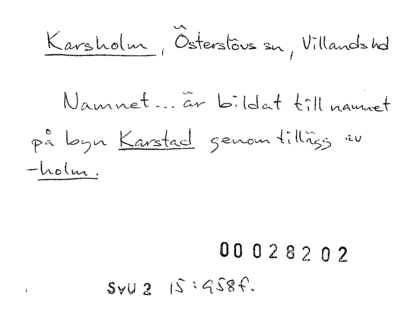 Karsholm, Österslövs sn, Villands hd
Namnet... är bildat till namnet
på byn Karstad genom tillägg av
-holm.
00028202
SvU 2 15:958f.